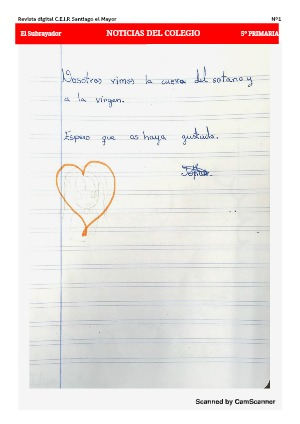 Revista digital C.E.I.P. Santiago el Mayor Nº1
El Subrayador NOTICIAS DEL COLEGIO 5º PRIMARIA
Nosotros vimos la cueva del sotano y
a la virgen.
Espero que os haya gustado.
Scanned by CamScanner